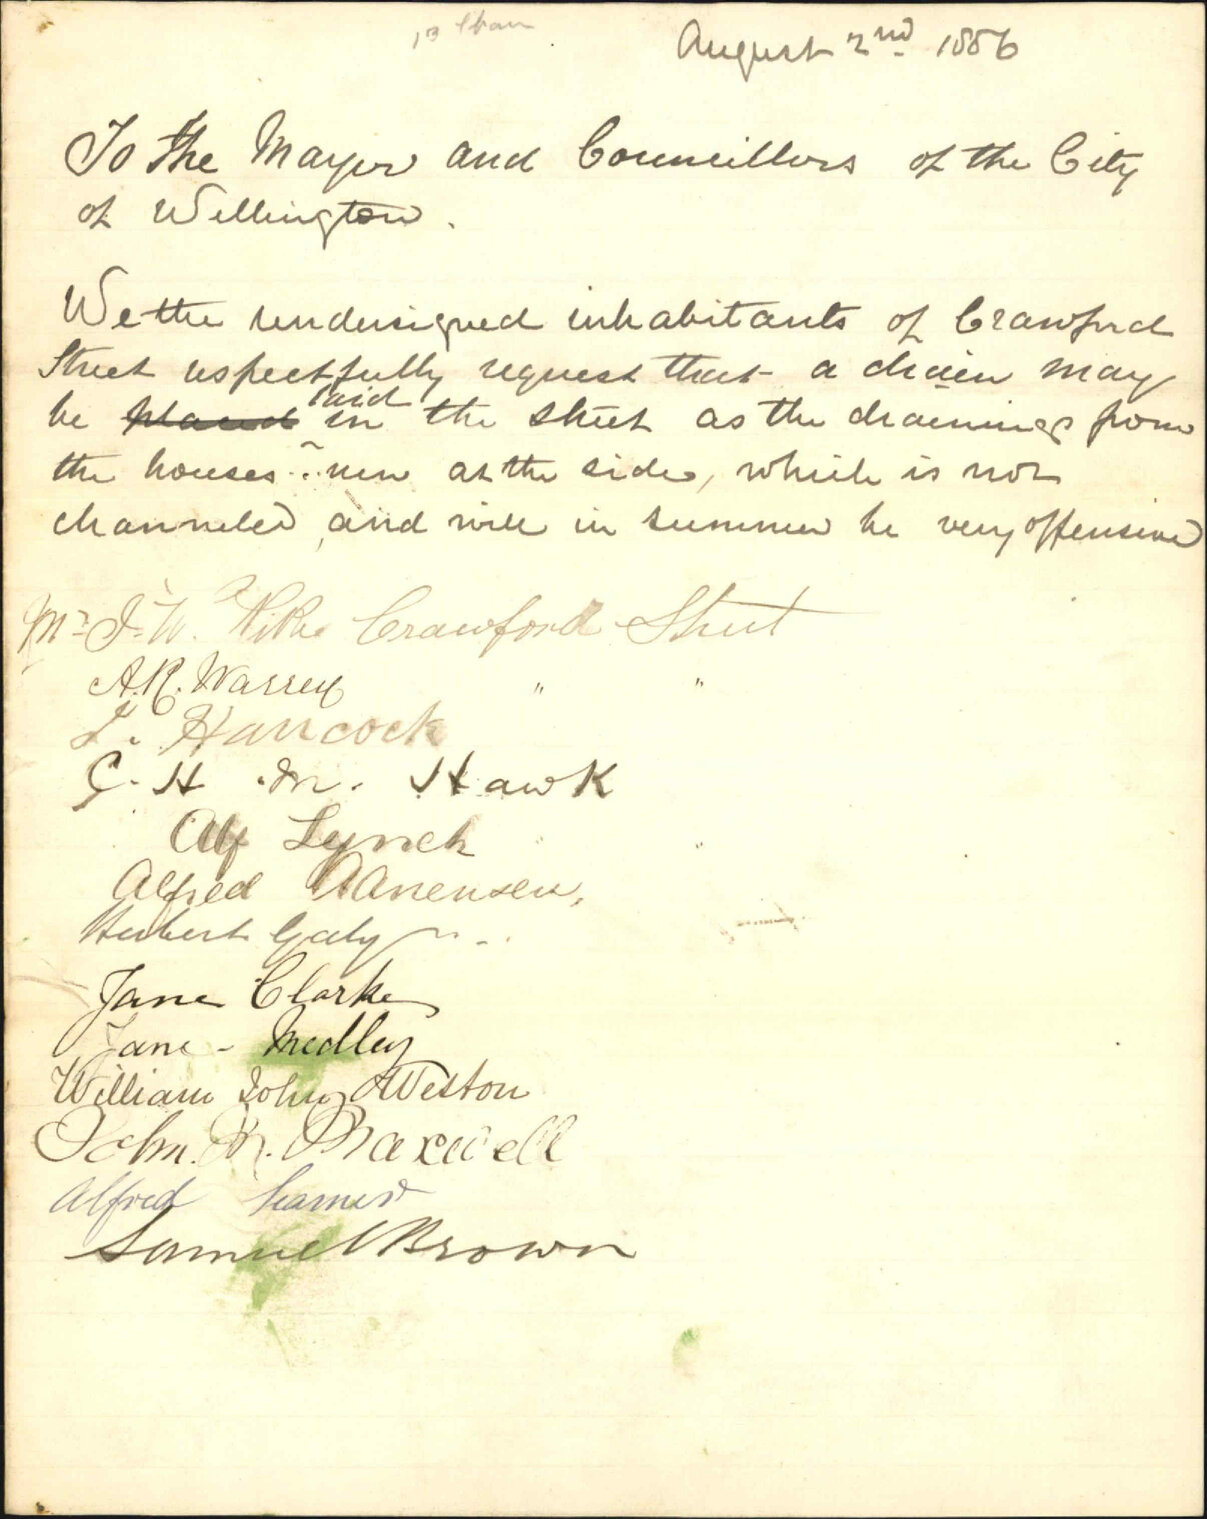 August 2nd 1886
To the Mayor and Councillors of the City
of Wellington.
We the undersigned inhabitants of Crawford
Street respectfully request that a drain may
be placed laid in the street as the drainings from
the houses run at the side, which is not
channeled, and will in summer be very offensive
Mr J. W. Pike Crawford Street
A.R. Warren " "
L. Hancock
C. H. M. Hawk
Alf Lynch " "
Alfred Aanensen,
Herbert
Jane Clarke
Jane - Medley
William John Weston
John. Maxwell
Alfred
Samuel Brown